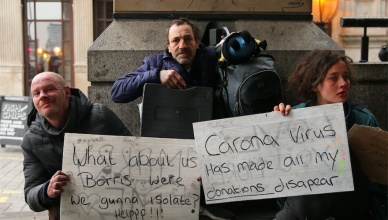 What about us
Borris were
we gunna isolate
Helppp!!!
Carona Virus
Has made all my
donations disapear